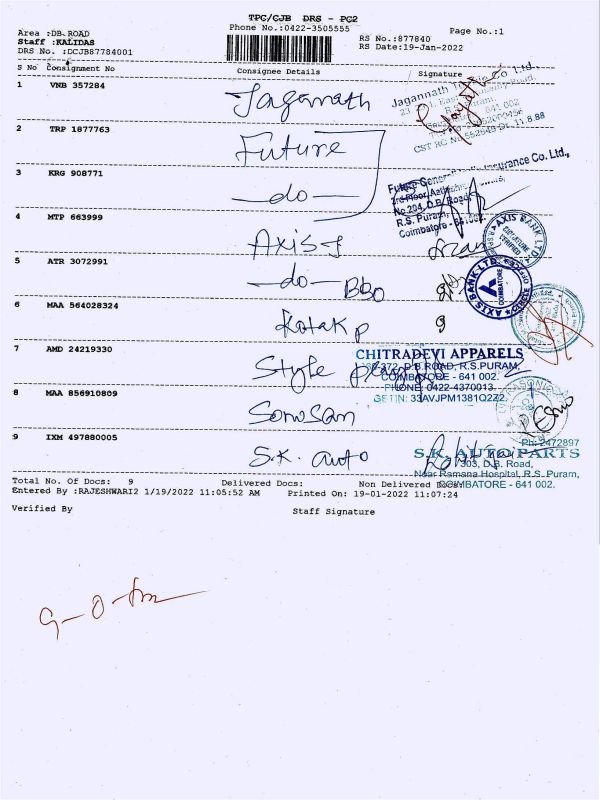 TPC/CJB DRS - PC2
Phone No.:0422-3505555
Page No.:1
Area :DB.ROAD
Staff :KALIDAS
DRS No. :DCJB87784001
RS No.:877840
RS Date:19-Jan-2022
S No Consignment No Consignee Details Signature
1 VNB 357284 Jagannath
Jagannath Co Ltd.
641 002
CST RC No 552549 Dt. 11.8.88
2 TRP 1877763 Future
3 KRG 908771 —do—
Future General Insurance Co. Ltd.,
3rd Floor,
No 204, D.B. Road,
R.S. Puram,
Coimbatore - 641002.
4 MTP 663999 Axis
AXIS BANK LTD
5 ATR 3072991 —do— BBO
AXIS BANK LTD. COIMBATORE CIRCLE
6 MAA 564028324 Kotak p
7 AMD 24219330 Style
CHITRADEVI APPARELS
D.B.ROAD, R.S.PURAM,
COIMBATORE - 641 002.
PHONE: 0422-4370013.
GSTIN: 33AVJPM1381Q2Z2
8 MAA 856910809 Sonusan
9 IXM 497880005 S.K. auto
Ph: 2472897
S.K. AUTO PARTS
303, D.B. Road,
Near Ramana Hospital, R.S. Puram,
COIMBATORE - 641 002.
Total No. Of Docs: 9 Delivered Docs: Non Delivered Docs:
Entered By :RAJESHWARI2 1/19/2022 11:05:52 AM Printed On: 19-01-2022 11:07:24
Verified By Staff Signature